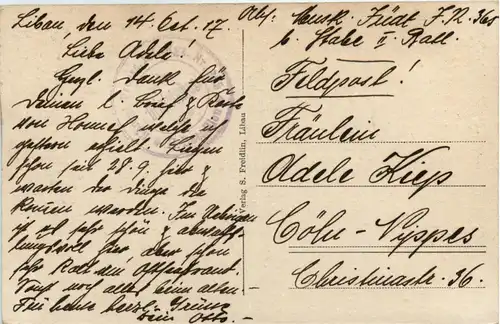 Libau, den 14 Oct. 17.
Liebe Adele!
Herzl. Dank für
Deinen l. Brief & Karte
von Honnef welche ich
gestern erhielt. Liegen
schon seit 28.9 hier &
warten der Dinge die
kommen werden. Im Uebrigen
ist es sehr schön & abwechs-
lungsvoll hier aber schon
sehr kalt
Sonst noch alles beim alten.-
Für heute herzl. Grüsse
Dein Otto.-
Verlag S. Freidlin, Libau
Abs: Musk. Jüdt I.R. 365
b. Stabe II Batl.
Feldpost!
Fräulein
Adele Kiep
Cöln-Nippes
Christinastr. 36.